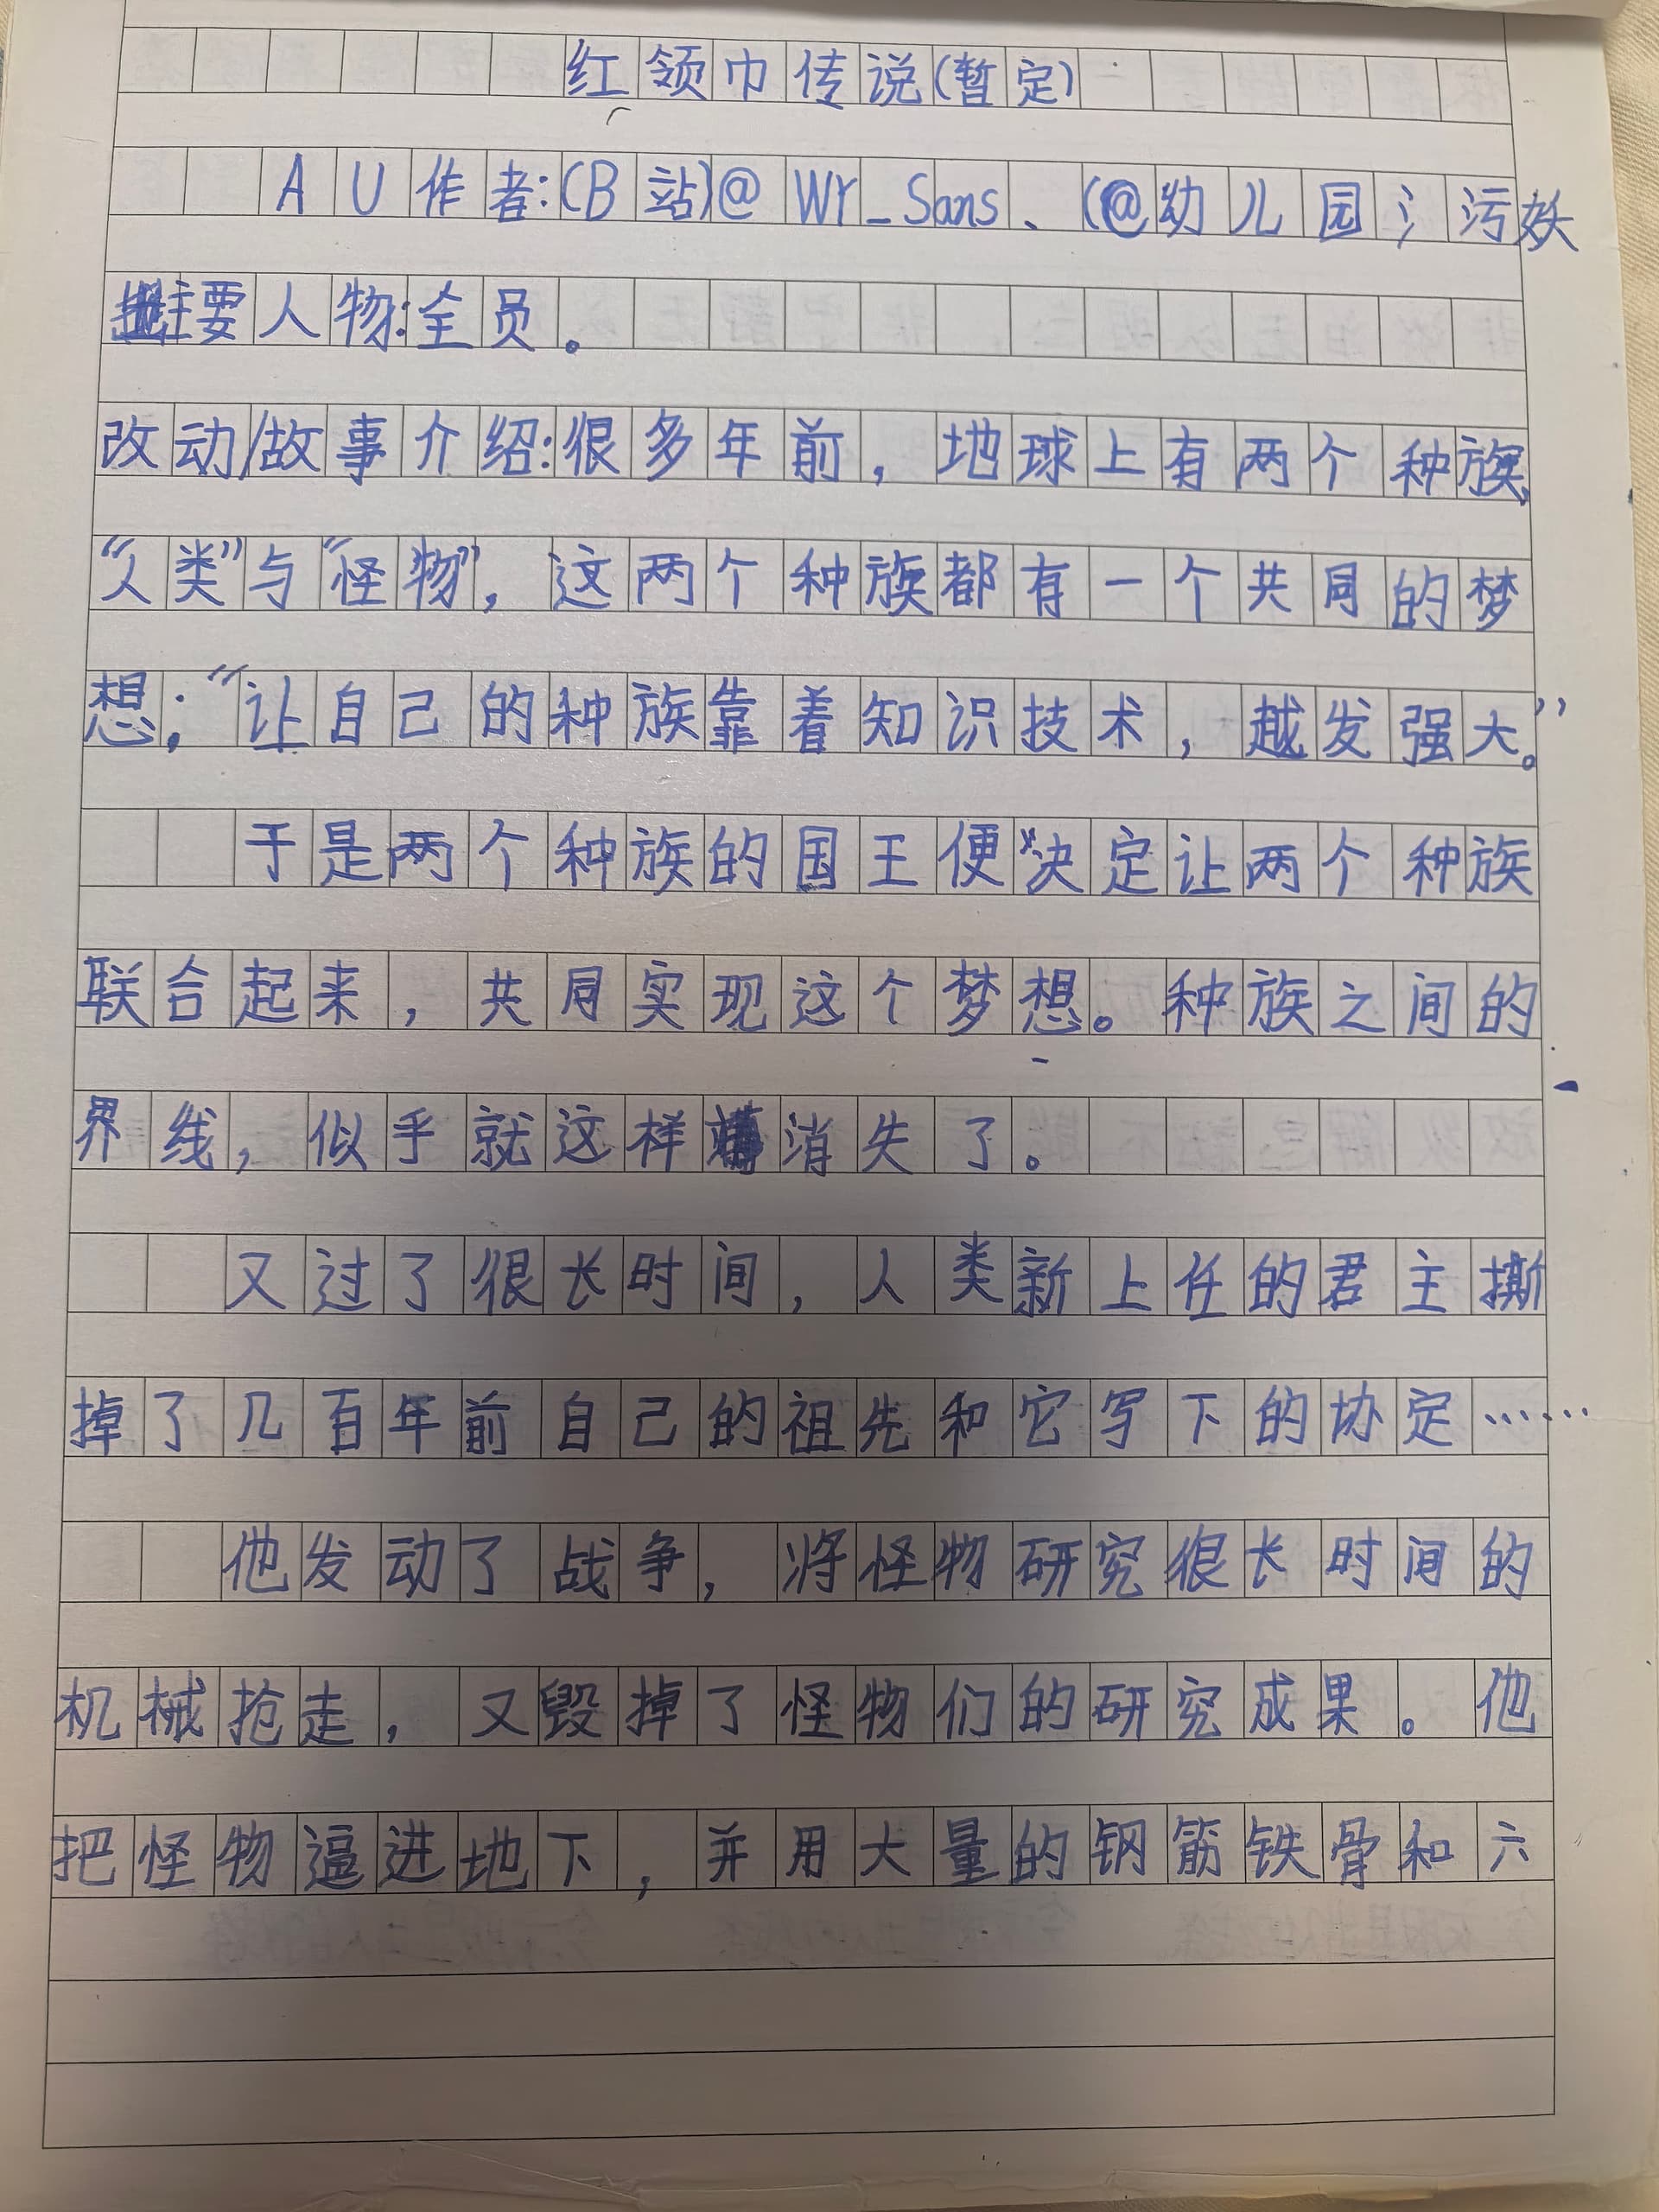 红领巾传说(暂定)
AU作者:(B站)@WY_Sans、(@幼儿园氵污妖
主要人物:全员。
改动/故事介绍:很多年前,地球上有两个种族,
“人类”与“怪物”,这两个种族都有一个共同的梦
想:“让自己的种族靠着知识技术,越发强大。”
于是两个种族的国王便决定让两个种族
联合起来,共同实现这个梦想。种族之间的
界线,似乎就这样消失了。
又过了很长时间,人类新上任的君主撕
掉了几百年前自己的祖先和它写下的协定……
他发动了战争,将怪物研究很长时间的
机械抢走,又毁掉了怪物们的研究成果。他
把怪物逼进地下,并用大量的钢筋铁骨和六